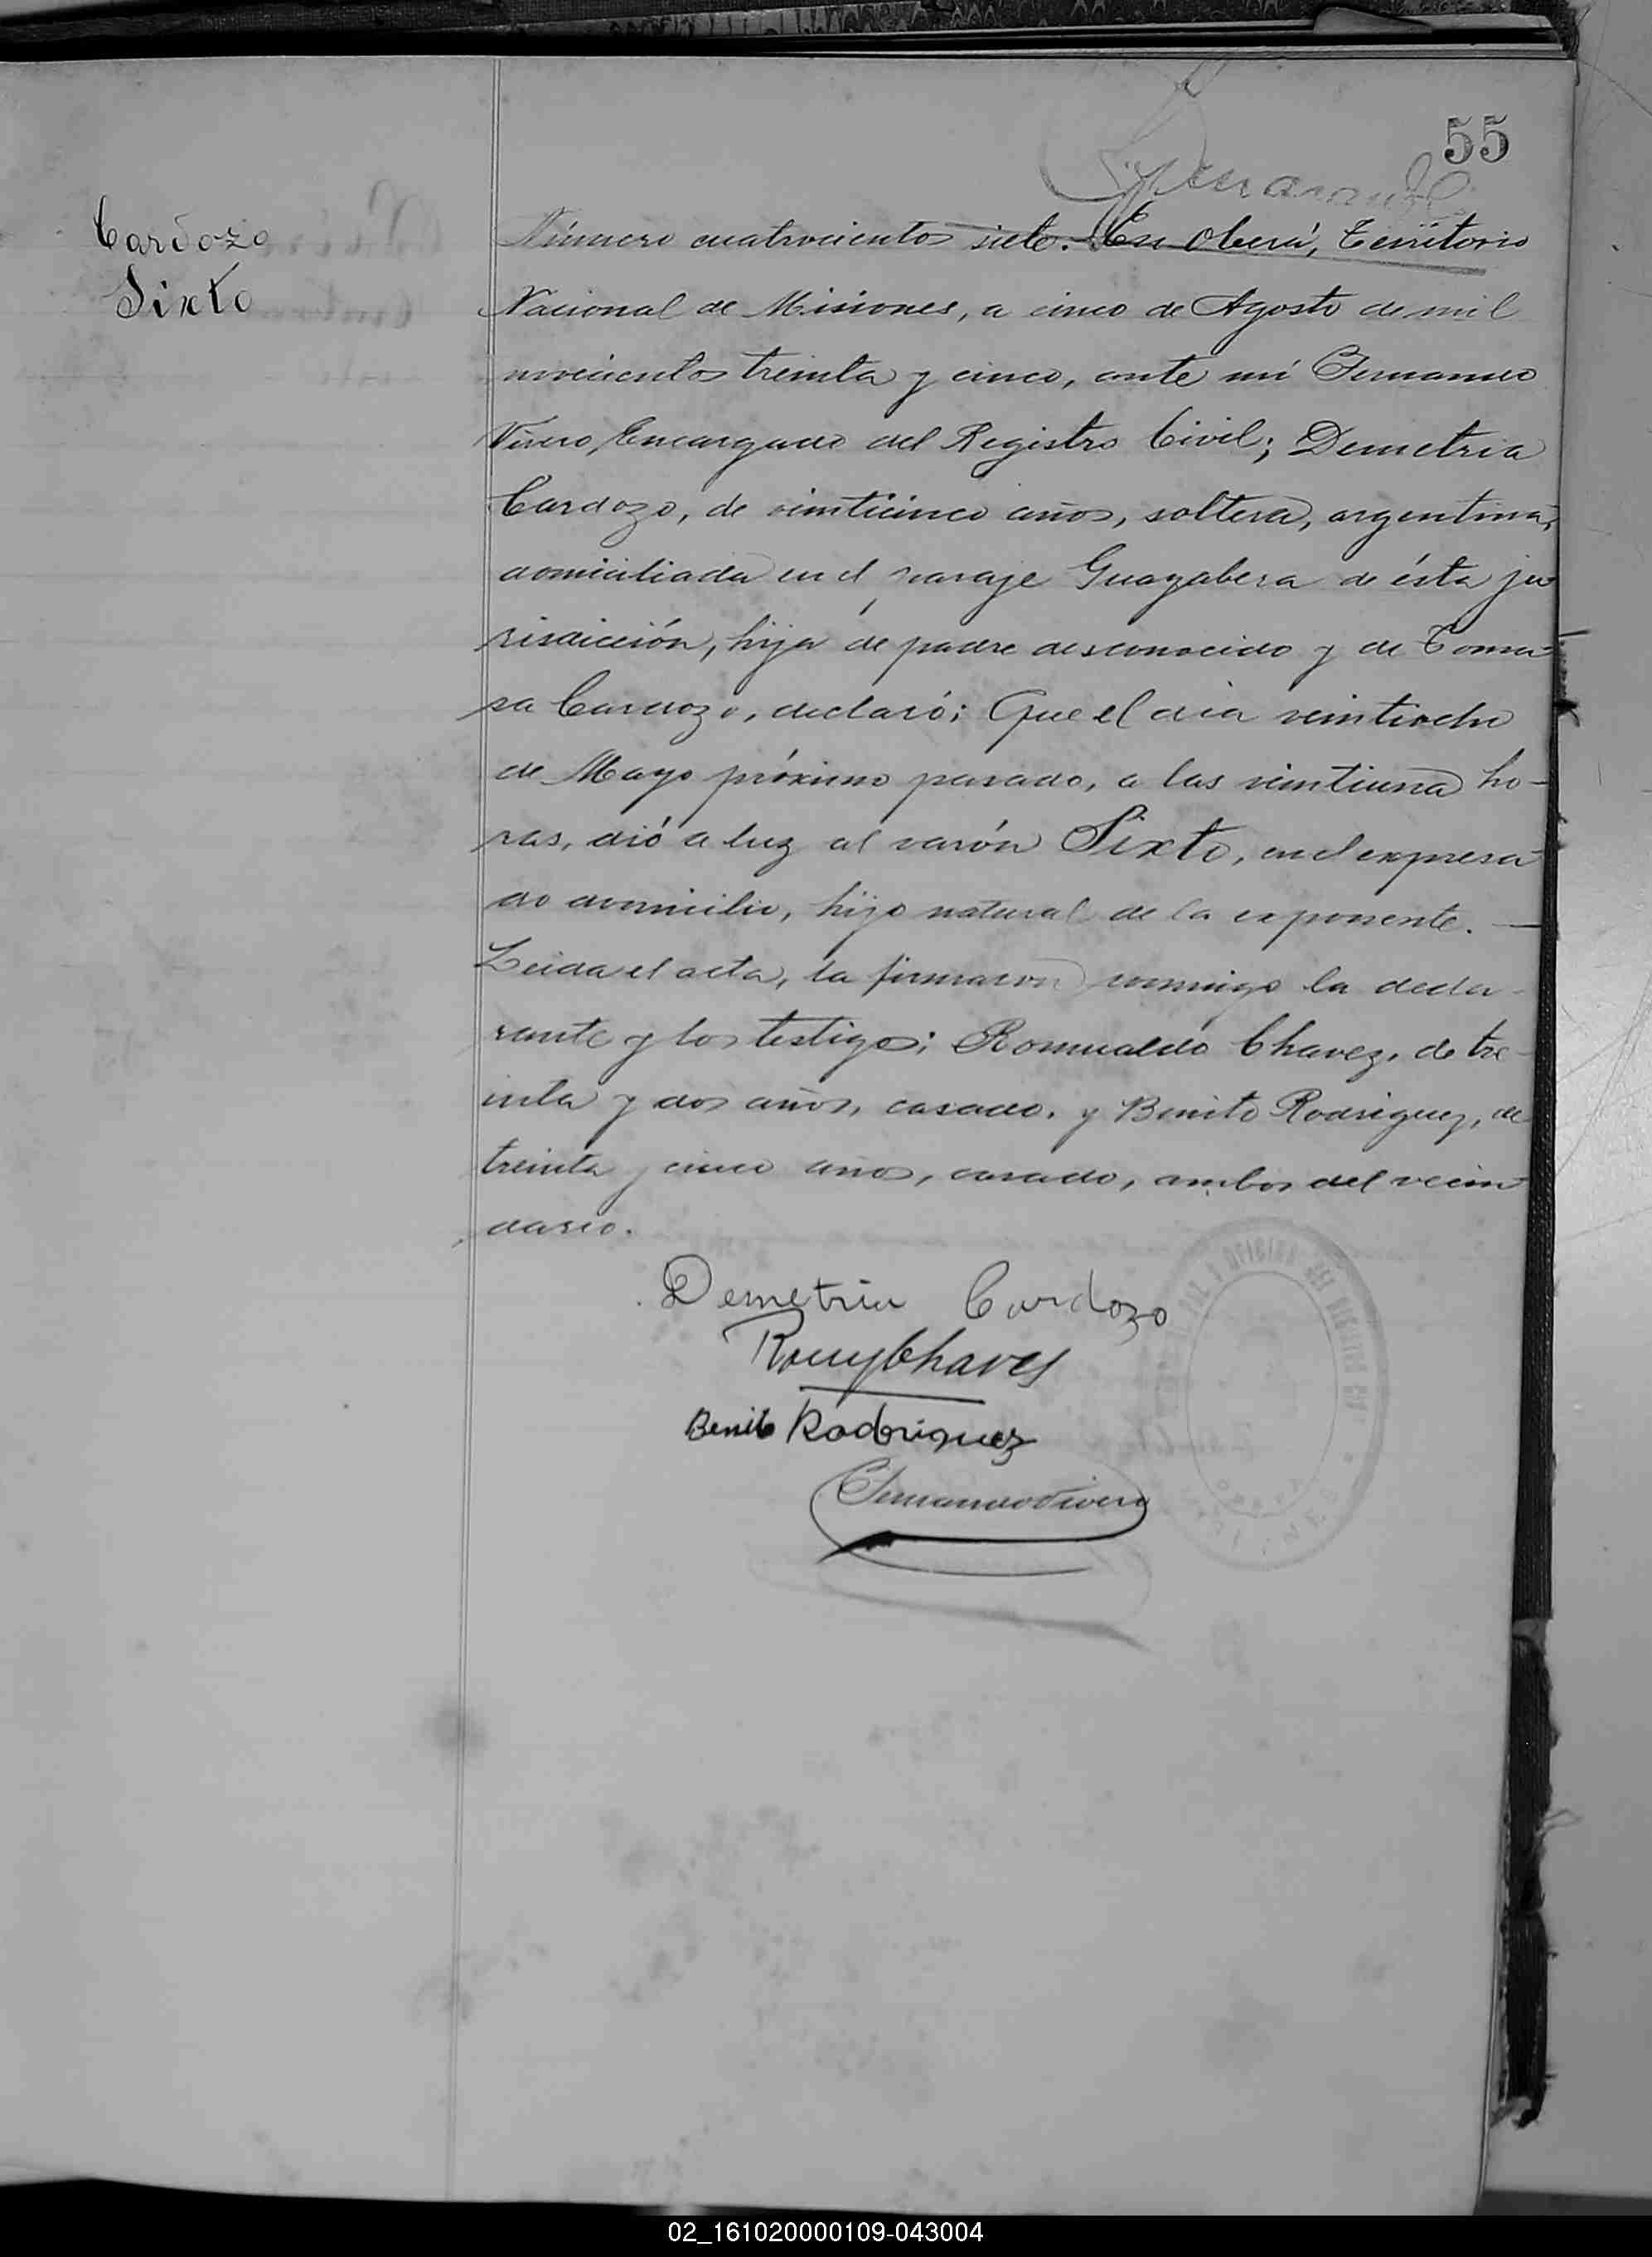 55
Cardozo
Sixto
Número cuatrocientos siete. En Oberá, Territorio
Nacional de Misiones, a cinco de Agosto de mil
novecientos treinta y cinco, ante mí Fernando
Vivero, Encargado del Registro Civil; Demetria
Cardozo, de veinticinco años, soltera, argentina,
domiciliada en el paraje Guayabera de ésta ju
risdicción, hija de padre desconocido y de Toma-
sa Cardozo, declaró; Que el dia veintiocho
de Mayo próximo pasado, a las veintiuna ho-
ras, dió a luz al varón Sixto, en el expresa
do domicilio, hijo natural de la exponente. —
Leida el acta, la firmaron conmigo la decla-
rante y los testigos; Romualdo Chavez, de tre-
inta y dos años, casado, y Benito Rodriguez, de
treinta y cinco años, casado, ambos del vecin-
dario.
Demetria Cardozo
Chaves
Benito Rodriguez
Fernando Vivero
02_161020000109-043004